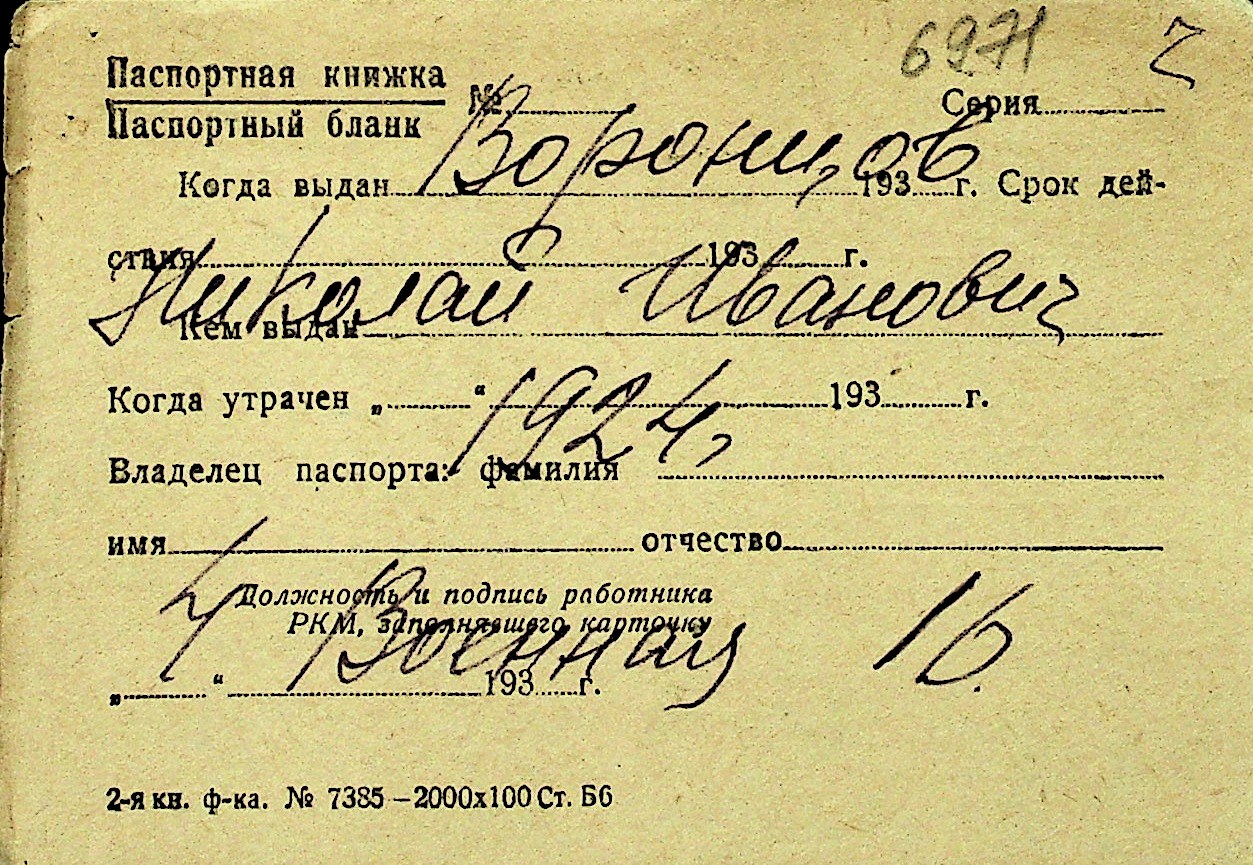 6971 2
Паспортная книжка
№ Серия
Паспортный бланк
Воронцов
Когда выдан 193 г. Срок дей-
ствия 193 г.
Николай Иванович
Кем выдан
Когда утрачен „ “ 193 г.
1924,
Владелец паспорта: фамилия
имя отчество
Должность и подпись работника
РКМ, заполнявшего карточку
Ч. Военная 16.
„ “ 193 г.
2-я кн. ф-ка. № 7385–2000х100 Ст. Б6